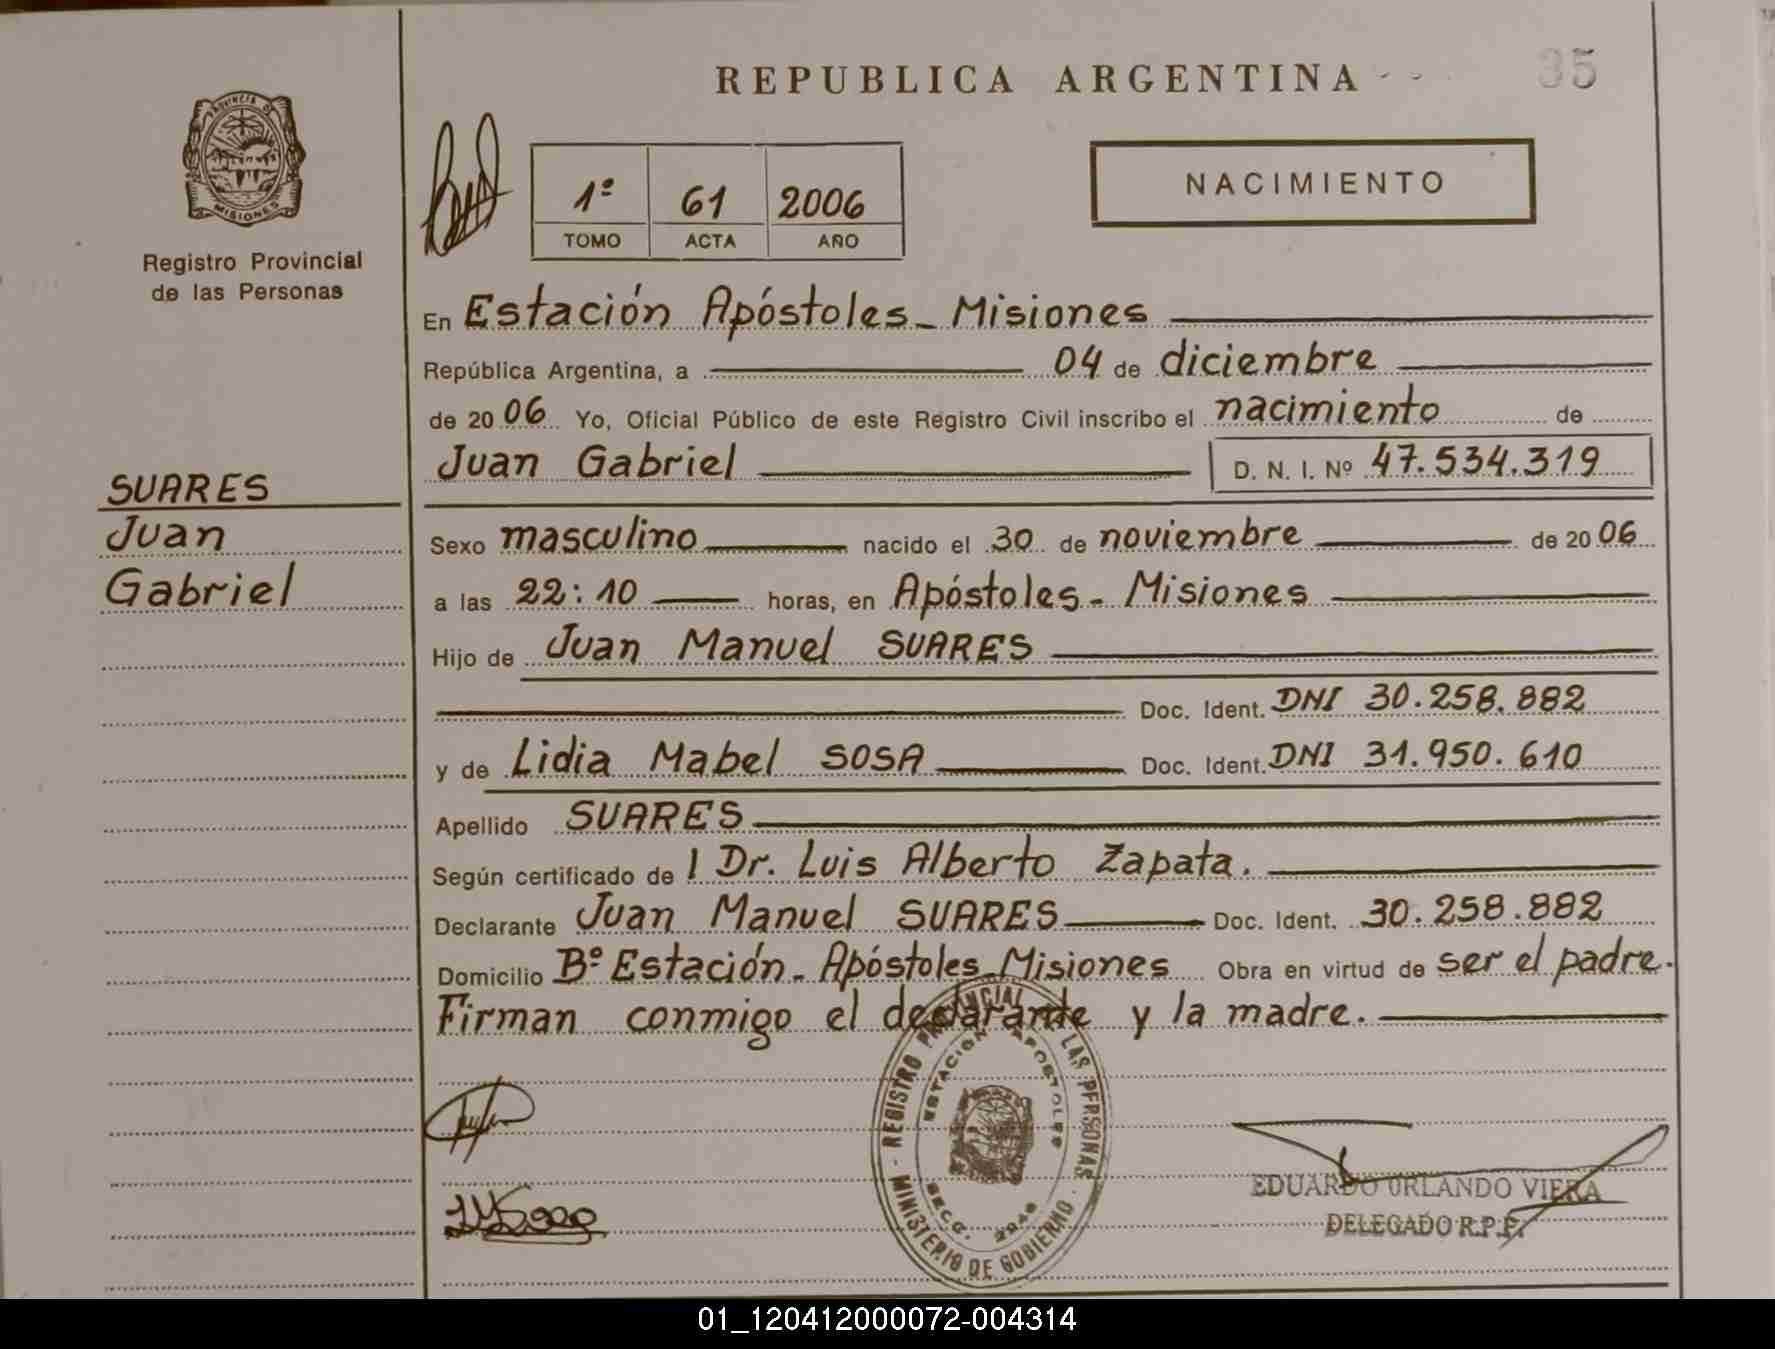 REPUBLICA ARGENTINA
35
PROVINCIA DE
MISIONES
Registro Provincial
de las Personas
1º 61 2006
TOMO ACTA AÑO
NACIMIENTO
En Estación Apóstoles - Misiones
República Argentina, a 04 de diciembre
de 20 06 Yo, Oficial Público de este Registro Civil inscribo el nacimiento de
Juan Gabriel D. N. I. Nº 47.534.319
SUARES
Juan
Gabriel
Sexo masculino nacido el 30 de noviembre de 20 06
a las 22:10 horas, en Apóstoles - Misiones
Hijo de Juan Manuel SUARES
Doc. Ident. DNI 30.258.882
y de Lidia Mabel SOSA Doc. Ident. DNI 31.950.610
Apellido SUARES
Según certificado de l Dr. Luis Alberto Zapata.
Declarante Juan Manuel SUARES Doc. Ident. 30.258.882
Domicilio Bº Estación - Apóstoles - Misiones Obra en virtud de ser el padre.
Firman conmigo el declarante y la madre.
REGISTRO PROVINCIAL DE LAS PERSONAS
ESTACION APOSTOLES
MINISTERIO DE GOBIERNO
EDUARDO ORLANDO VIERA
DELEGADO R.P.P.
01_120412000072-004314